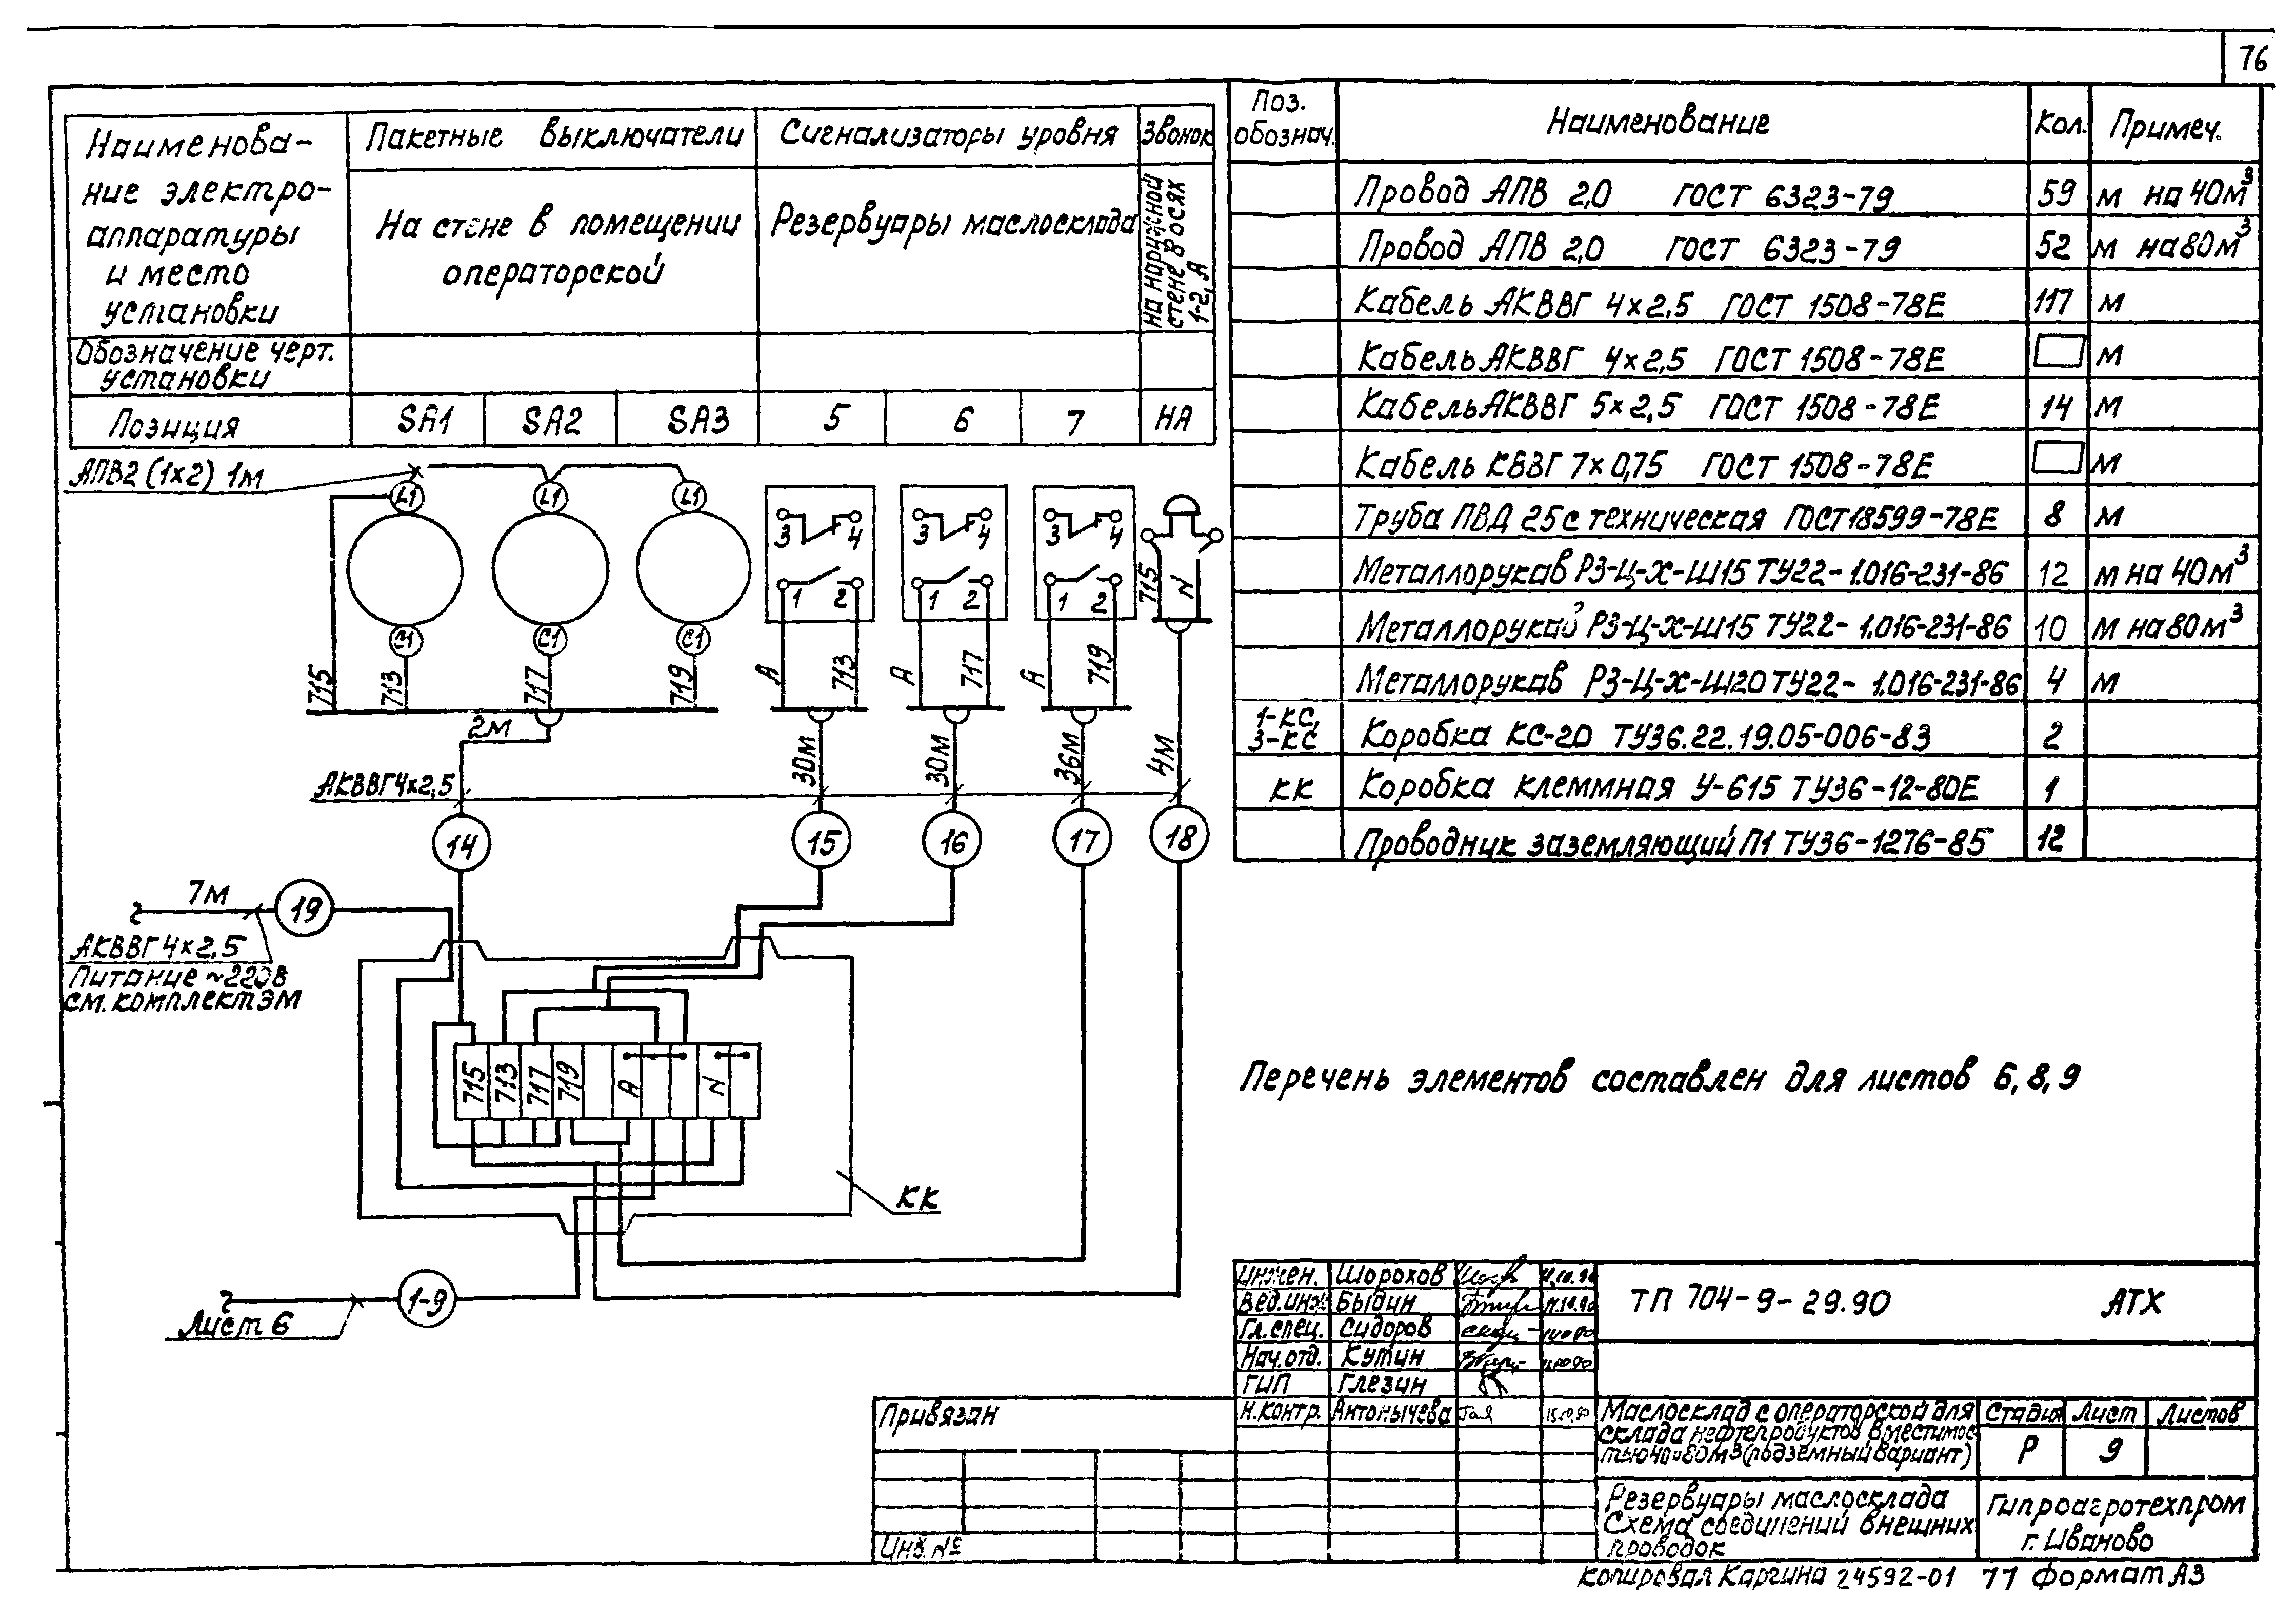 76
Наименова-
ние электро-
аппаратуры
и место
установки
Пакетные выключатели
Сигнализаторы уровня
Звонок
На стене в помещении
операторской
Резервуары маслосклада
на наружной
стене в осях
1-2, А
Обозначение черт.
установки
Позиция
SA1
SA2
SA3
5
6
7
НА
АПВ2 (1×2) 1м
L1
L1
L1
C1
C1
C1
715
713
717
719
2м
3
4
1
2
А
713
3
4
1
2
А
717
3
4
1
2
А
719
715
N
30м
30м
36м
4м
АКВВГ4×2,5
14
15
16
17
18
7м
19
АКВВГ 4×2,5
Питание ~220В
см. комплект ЭМ
715
713
717
719
А
N
КК
1-9
Лист 6
Поз.
обознач.
Наименование
Кол.
Примеч.
Провод АПВ 2,0 ГОСТ 6323-79 59 м на 40м³
Провод АПВ 2,0 ГОСТ 6323-79 52 м на 80м³
Кабель АКВВГ 4×2,5 ГОСТ 1508-78Е 117 м
Кабель АКВВГ 4×2,5 ГОСТ 1508-78Е м
Кабель АКВВГ 5×2,5 ГОСТ 1508-78Е 14 м
Кабель КВВГ 7×0,75 ГОСТ 1508-78Е м
Труба ПВД 25с техническая ГОСТ18599-78Е 8 м
Металлорукав РЗ-Ц-Х-Ш15 ТУ22-1.016-231-86 12 м на 40м³
Металлорукав РЗ-Ц-Х-Ш15 ТУ22-1.016-231-86 10 м на 80м³
Металлорукав РЗ-Ц-Х-Ш20 ТУ22-1.016-231-86 4 м
1-КС,
3-КС
Коробка КС-20 ТУ36.22.19.05-006-83 2
КК Коробка клеммная У-615 ТУ36-12-80Е 1
Проводник заземляющий П1 ТУ36-1276-85 12
Перечень элементов составлен для листов 6, 8, 9
Инжен. Шорохов
Вед.инж Быдин
Гл.спец. Сидоров
Нач.отд. Кутин
ГИП Глезин
Н.контр. Антонычева
ТП 704-9-29.90 АТХ
Маслосклад с операторской для
склада нефтепродуктов вместимос-
тью 40 и 80 м3 (подземный вариант)
Стадия
Лист
Листов
Р
9
Резервуары маслосклада
Схема соединений внешних
проводок
Гипроагротехпром
г. Иваново
Привязан
Инв. №
Копировал Каргина 24592-01 77 Формат А3